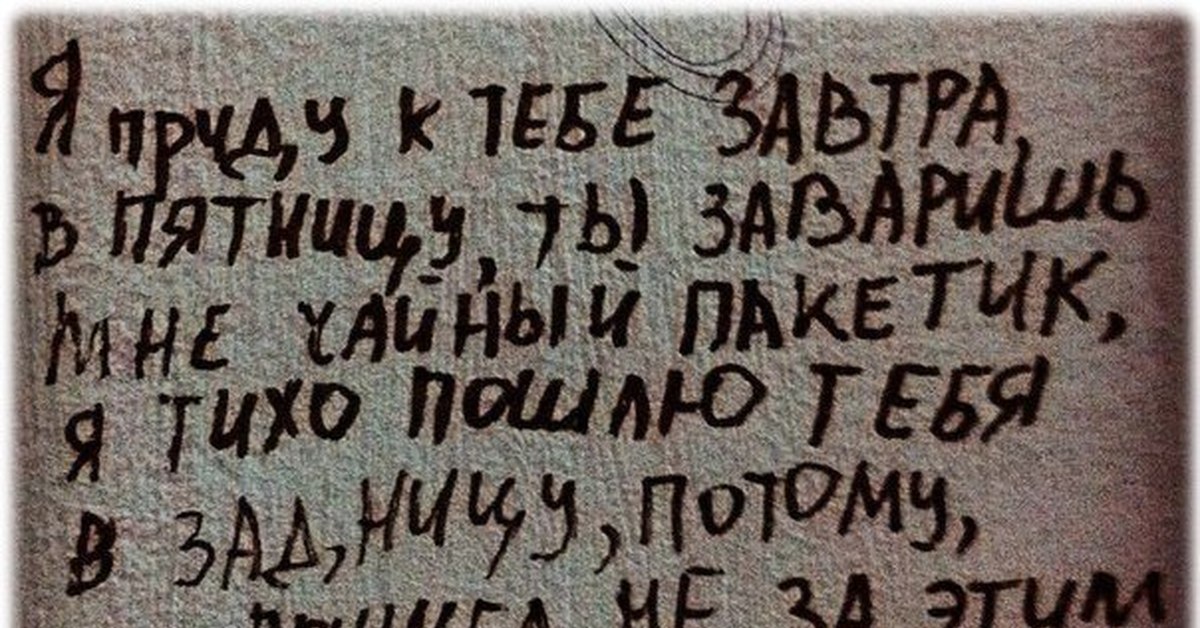 Я приду к ТЕБЕ ЗАВТРА,
в ПЯТНИЦУ, ТЫ ЗАВАРИШЬ
МНЕ ЧАЙНЫЙ ПАКЕТИК,
Я ТИХО ПОШЛЮ ТЕБЯ
В ЗАДНИЦУ, ПОТОМУ,
ПРИШЛА НЕ ЗА ЭТИМ